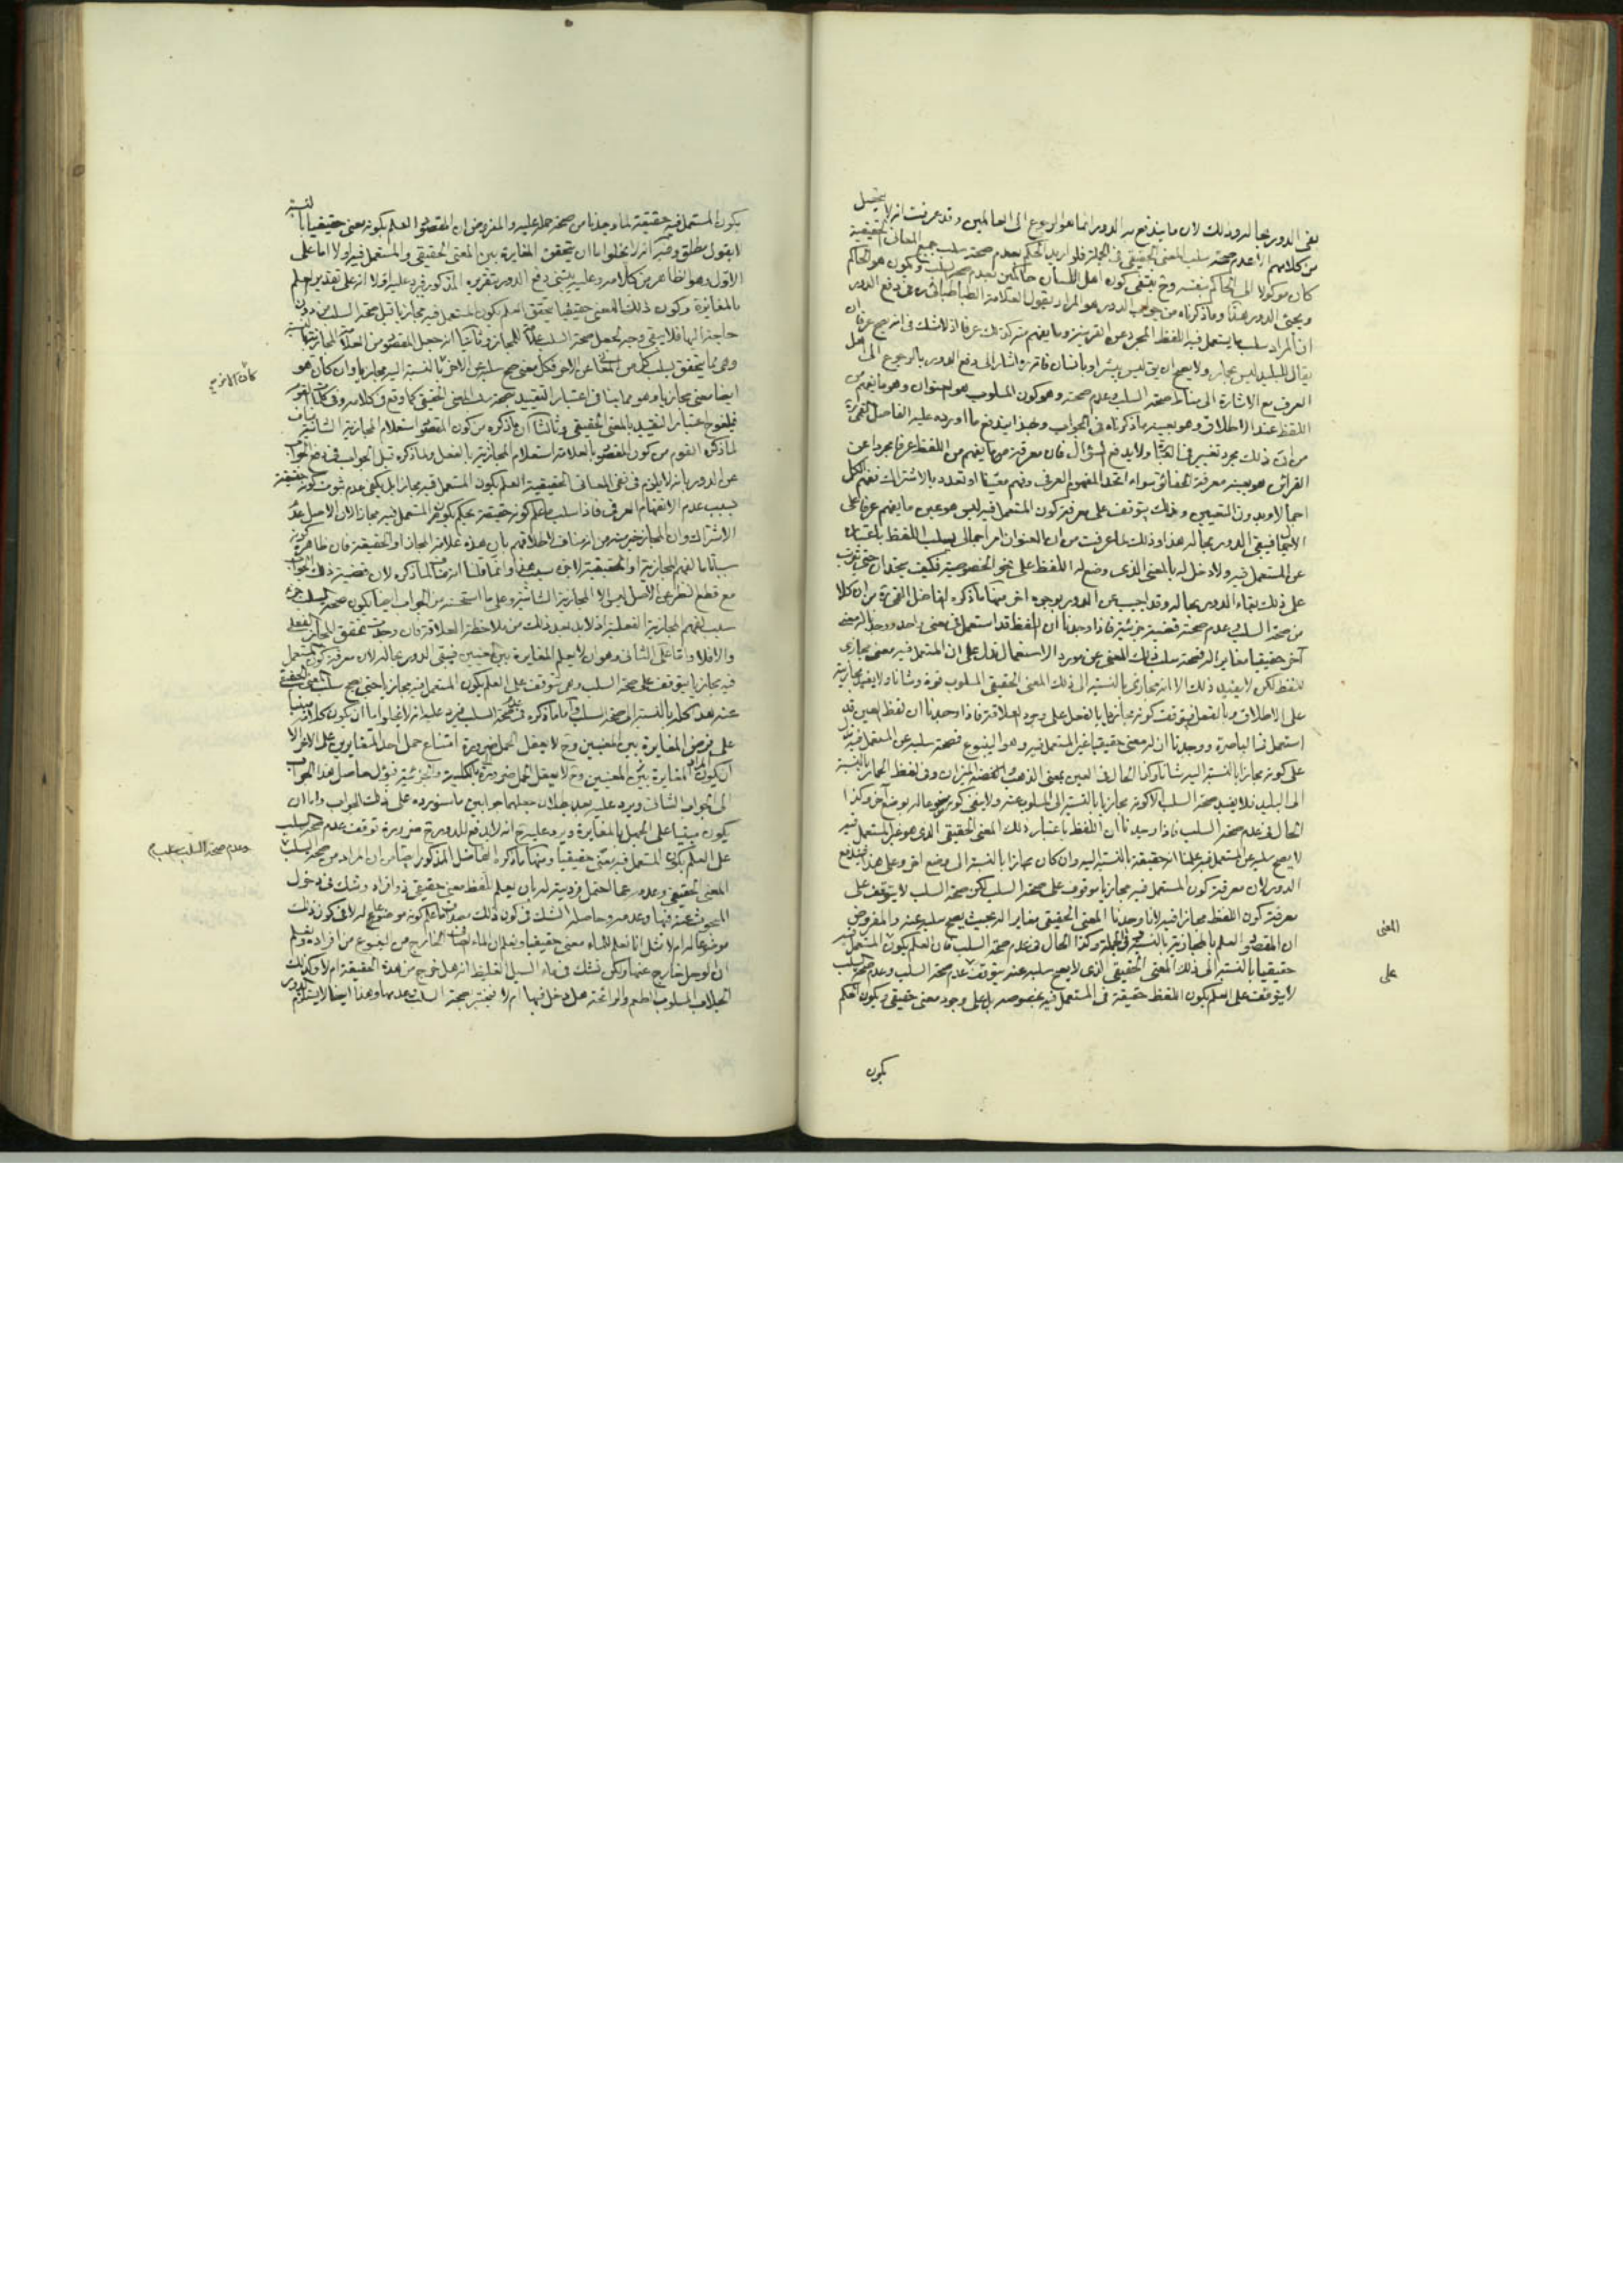 نفى الدور بحاله وذلك لان ما يندفع به الدور انما هو الرجوع الى العالمين وقد عرفت انه لا يتحصل
من كلامهم الا عدم صحة سلب المعنى الحقيقي في الجملة فلو اريد الحكم بعدم صحة سلب جميع المعاني الحقيقية
كان موكولا الى الحاكم بنفسه وح ينتفى كون اهل اللسان حاكمين بعدم صحة السلب ويكون هو الحاكم
ويجيء الدور هذا وما ذكرناه من جواب الدور هو المراد بقول العلامة الطباطبائي في دفع الدور
ان المراد سلب ما يستعمل فيه اللفظ المجرد عن القرينة وما يفهم منه كذلك عرفا اذ لا شك في انه يصح عرفا ان
يقال للبليد ليس بحمار ولا يصح ان يق ليس ببشر او بانسان فانه اشار الى دفع الدور بالرجوع الى اهل
العرف مع الاشارة الى مناط صحة السلب وعدم صحته وهو كون المسلوب هو العنوان وهو ما يفهم من
اللفظ عند الاطلاق وهو بعينه ما ذكرناه في الجواب وح يندفع ما اورده عليه الفاضل القمي
من ان ذلك مجرد تغيير في العبارة ولا يدفع السؤال فان معرفة ما يفهم من اللفظ عرفا مجردا عن
القرائن هو بعينه معرفة الحقائق سواء اتحد المفهوم العرفي وفهم معينا او تعدد بالاشتراك ففهم الكل
اجمالا وبدون التعيين وذلك يتوقف على معرفة كون المستعمل فيه ليس هو عين ما يفهم عرفا على
فيبقى الدور بحاله هذا وذلك لما عرفت من ان العنوان امر اجمالي يسلب اللفظ باعتباره
عن المستعمل فيه ولا دخل له بالمعنى الذي وضع له اللفظ على نحو الخصوصية فكيف يتحدان حتى يترتب
على ذلك بقاء الدور بحاله وقد اجيب عن الدور بوجوه اخر منها ما ذكره الفاضل القمي من ان كلا
من صحة السلب وعدم صحته قضية جزئية فاذا وجدنا ان اللفظ قد استعمل في معنى واحد ووجدنا له معنى
آخر حقيقيا مغايرا له فصحة سلب ذلك المعنى عن مورد الاستعمال تدل على ان المستعمل فيه معنى مجازى
للفظ لكن لا يفيد ذلك الا انه مجازى بالنسبة الى ذلك المعنى الحقيقي المسلوب قوة وشانا ولا يفيد مجازيته
على الاطلاق وبالفعل فيتوقف كونه مجازيا بالفعل على وجود العلاقة فاذا وجدنا ان لفظ العين قد
استعمل في الباصرة ووجدنا ان له معنى حقيقيا غير المستعمل فيه وهو الينبوع فصحة سلبه عن المستعمل فيه تدل
على كونه مجازا بالنسبة اليه شانا وكذا الحال في العين بمعنى الذهب الميزان وفي لفظ الحمار بالنسبة
الى البليد فلا يفيد صحة السلب الا كونه مجازيا بالنسبة الى المسلوب عنه ولا ينفى كونه موضوعا له بوضع آخر وكذا
الحال في عدم صحة السلب فاذا وجدنا ان اللفظ باعتبار ذلك المعنى الحقيقي الذي هو غير المستعمل فيه
لا يصح سلبه عن المستعمل فيه علمنا انه حقيقة بالنسبة اليه وان كان مجازا بالنسبة الى وضع اخر وعلى هذا فيندفع
الدور لان معرفة كون المستعمل فيه مجازيا موقوف على صحة السلب لكن صحة السلب لا يتوقف على
معرفة كون اللفظ مجازا فيه لانا وجدنا المعنى الحقيقي مغايرا له بحيث يصح سلبه عنه والمفروض
ان المقصود العلم بالمجازية بالنسبة في الجملة وكذا الحال في عدم صحة السلب فان العلم بكون المستعمل فيه
حقيقيا بالنسبة الى ذلك المعنى الحقيقي الذي لا يصح سلبه عنه يتوقف على عدم صحة السلب وعدم صحة السلب
لا يتوقف على العلم بكون اللفظ حقيقة في المستعمل فيه بخصوصه بل على وجود معنى حقيقي ويكون العلم
المعنى
على
بكون
بكون المستعمل فيه حقيقة لما وجدنا من صحة حمله عليه والمفروض ان المقصود العلم بكونه معنى حقيقيا بالنسبة
لا بقول مطلق وفيه انه لا يخلو اما ان يتحقق المغايرة بين المعنى الحقيقي والمستعمل فيه او لا اما على
الاول وهو الظاهر من كلامه وعليه يبتنى دفع الدور بتقريره المذكور فيرد عليه اولا انه على تقدير العلم
بالمغايرة وكون ذلك المعنى حقيقيا يتحقق العلم بكون المستعمل فيه مجازيا قبل صحة السلب من دون
حاجة اليها فلا يبقى وجه لجعل صحة السلب علامة للمجاز وثانيا انه جعل المقصود من العلامة المجازية الشانية
وهى مما يتحقق بسلب كل من عن الاخر فكل معنى صح سلبه عن الاخر كان بالنسبة اليه مجازيا وان كان هو
ايضا معنى مجازيا وهو مما ينافي اعتبار التقييد بصحة سلب المعنى الحقيقي كما وقع في كلامه وفي كلمات القوم
فيلغو ح اعتبار التقييد بالمعنى الحقيقي وثالثا ان ما ذكره من كون المقصود استعلام المجازية الشانية مناف
لما ذكره القوم من كون المقصود بالعلامة استعلام المجازية بالفعل ولما ذكره قبل الجواب في دفع الجواب
عن الدور بانه لا يلزم في نفى المعاني الحقيقية العلم بكون المستعمل فيه مجازا بل يكفى عدم ثبوت كونه حقيقة
بسبب عدم الانفهام العرفي فاذا سلب ما علم كونه حقيقة يحكم بكون المستعمل فيه مجازا لان الاصل عدم
الاشتراك وان المجاز خير منه من انه مناف لاطلاقهم بان هذه علامة المجاز او الحقيقة فان ظاهره كونه
سببا تاما لفهم المجازية او الحقيقية لا جزء سبب هذا وانما قلنا انه مناف لما ذكره لان قضية ذلك الجواب
مع قطع النظر عن الاصل ليس الا المجازية الشانية وعلى ما استحسنه من الجواب ايضا يكون صحة السلب جزء
سبب لفهم المجازية الفعلية اذ لا بد بعد ذلك من ملاحظة العلاقة فان وجدت تحقق المجاز الفعلى
والا فلا واما على الثاني وهو ان لا يعلم المغايرة بين المعنيين فيبقى الدور بحاله لان معرفة كون المستعمل
فيه مجازيا يتوقف على صحة السلب وهى يتوقف على العلم بكون المستعمل فيه مجازيا حتى يصح سلب المعنى الحقيقي
عنه هذا كله بالنسبة الى صحة السلب واما ما ذكره في عدم صحة السلب فيرد عليه انه لا يخلو اما ان يكون كلامه مبنيا
على فرض المغايرة بين المعنيين وح لا يعقل الحمل ضرورة امتناع حمل احد المتغايرين على الاخر الا
ان يكون المراد المغايرة بين المعنيين وح لا يعقل الحمل ضرورة بالكلية والجزئية فيؤل حاصل هذا الجواب
الى الجواب الثاني ويرد عليه بعد بطلان جعلهما جوابين ما سنورده على ذلك الجواب واما ان
يكون مبنيا على الجهل بالمغايرة ويرد عليه ح انه لا يدفع الدور ح ضرورة توقف عدم صحة السلب
على العلم بكون المستعمل فيه معنى حقيقيا ومنها ما ذكره الفاضل المذكور احتمالا من ان المراد من صحة السلب
المعنى الحقيقي وعدمه عما احتمل فرديته له بان يعلم للفظ معنى حقيقي ذو افراد وشك في دخول
المبحوث عنه فيها وعدمه وحاصله الشك في كون ذلك مصداق ما علم كونه موضوعا له لا في كون ذلك
موضوعا له ام لا مثل انا نعلم للماء معنى حقيقيا ونعلم ان الماء الصافي الخارج من الينبوع من افراده ونعلم
ان الوحل خارج عنها ولكن نشك في ماء السيل الغليظ انه هل خرج من هذه الحقيقة ام لا وكذلك
الجلاب المسلوب الطعم والرائحة هل دخل فيها ام لا فنختبر بصحة السلب وعدمها وهذا ايضا لا يستلزم الدور
وعدم صحة السلب